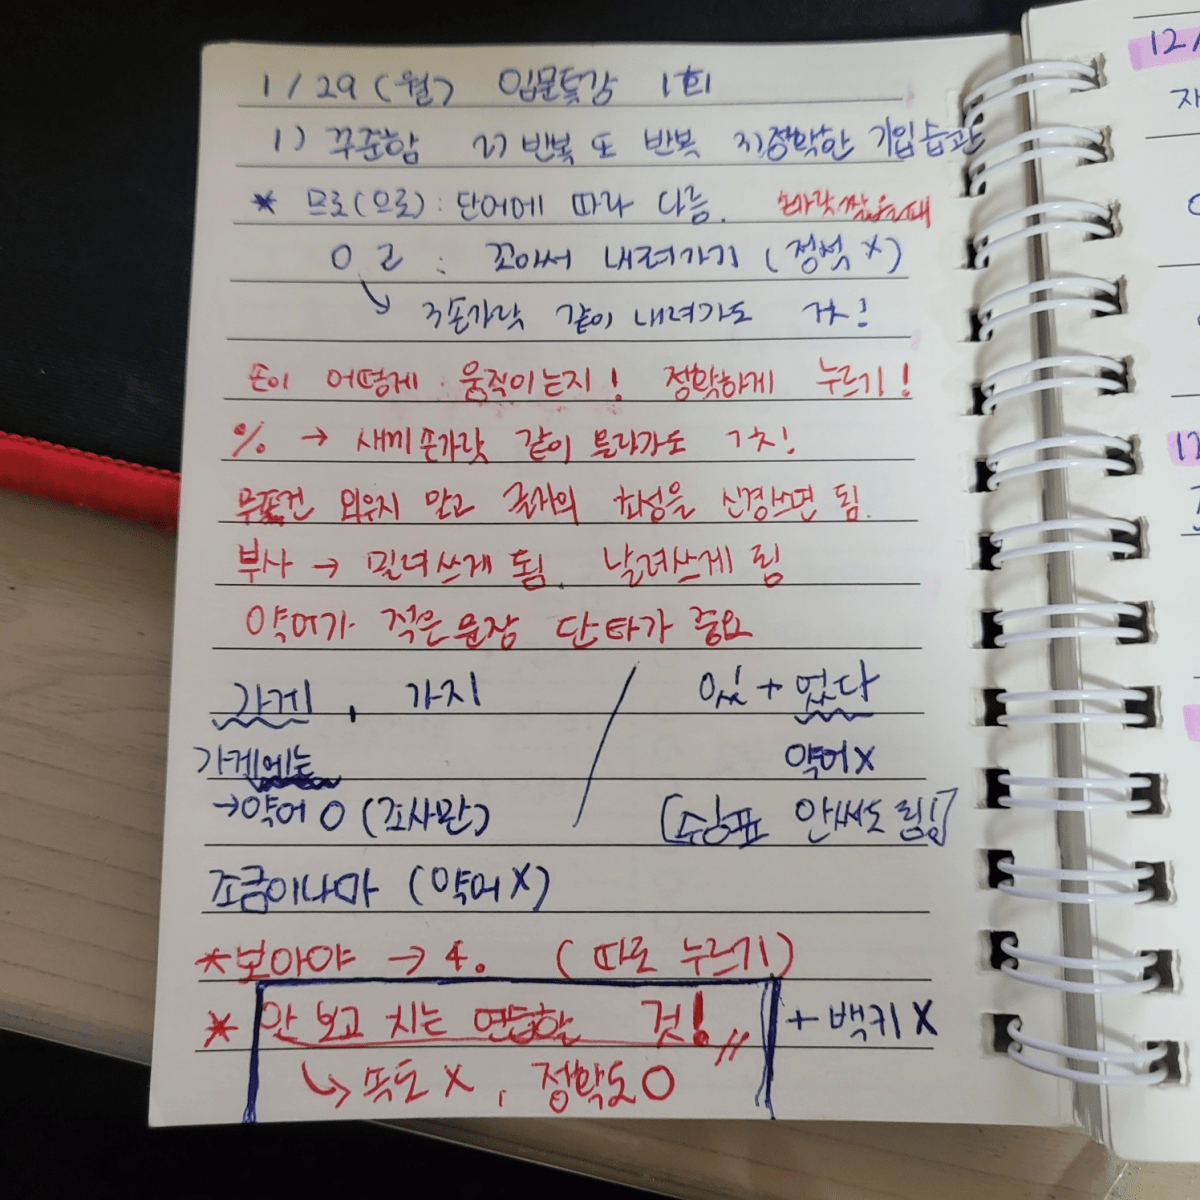 1/29 (월) 입문특강 1회
1) 꾸준함 2) 반복 또 반복 3) 정확한 기입습관
* 므로(으로) : 단어에 따라 다름. 손가락 짧을때
ㅇㄹ : 꼬아서 내려가기 (정석X)
↳ 3손가락 같이 내려가도 ㄱㅊ!
손이 어떻게 움직이는지! 정확하게 누르기!
% → 새끼손가락 같이 올라가도 ㄱㅊ!
무조건 외우지 말고 글자의 초성을 신경쓰면 됨.
부사 → 밀려쓰게 됨. 날려쓰게 됨
약어가 적은 문장 단타가 중요
가게, 가지 / 있 + 었다
가게에는 약어X
→약어 O (조사만) [수강표 안써도 됨!]
조금이나마 (약어X)
*보아야 → 4. (따로 누르기)
* 안 보고 치는 연습할 것! + 백키X
↳ 속도 X, 정확도 O
12/
자